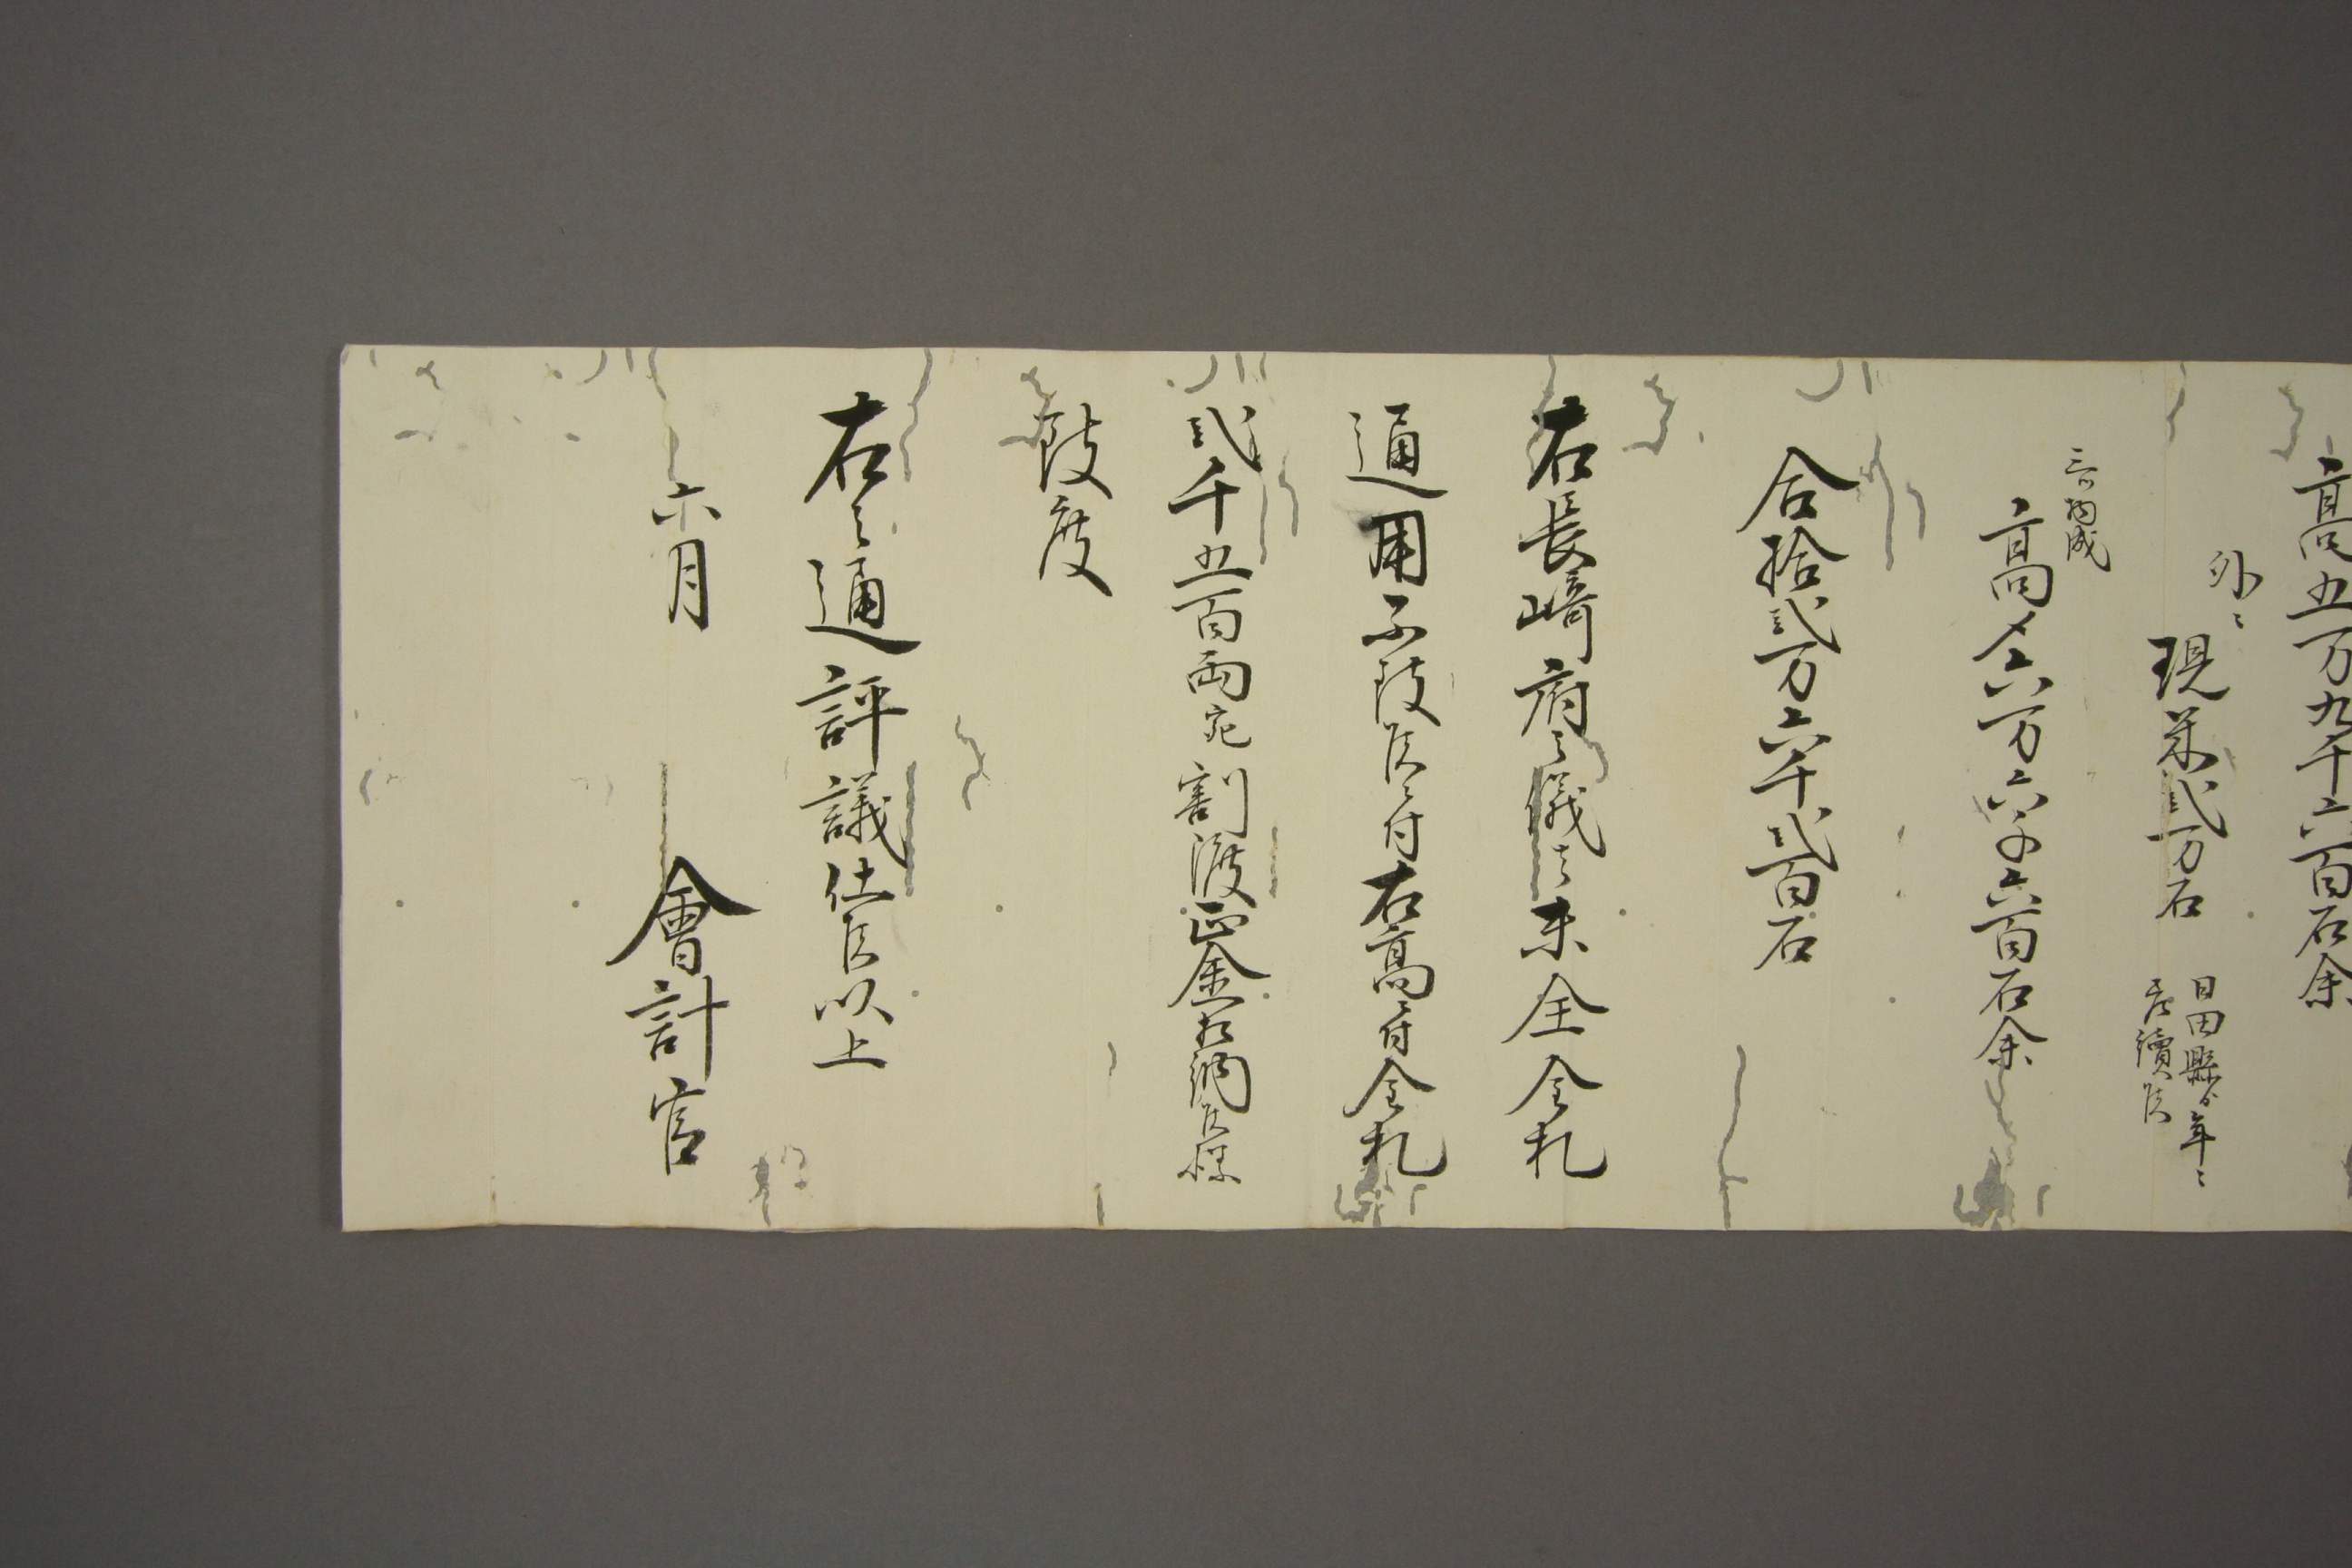 高五万九千六百石余
外ニ
現米貳万石
日田縣ゟ年ニ
差續候
三ツ物成
高〆六万六千六百石余
合拾貳万六千貳百石
右長﨑府之儀者未全金札
通用不致候ニ付右高ニ付金札
貳千五百両宛割渡正金相納候様
致度
右之通評議仕候以上
六月
會計官